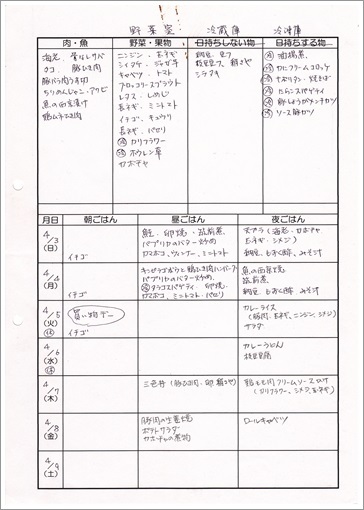 野菜室 冷蔵庫 冷凍庫
肉・魚 野菜・果物 日持ちしない物 日持ちする物
海老、
タコ 豚ひき肉
豚バラ肉
ちりめんじゃこ・アサリ
魚の西京漬け
鶏ムネひき肉
ニンジン 玉ネギ
シイタケ ジャガ芋
キャベツ トマト
ブロッコリースプラウト
レタス しめじ
長ネギ、ミントマト
イチゴ、キュウリ
長ネギ、パセリ
冷 カリフラワー
冷 ホウレン草
カボチャ
納豆 豆フ
枝豆豆フ
シラタキ
冷 油揚煮
冷 カニクリームコロッケ
冷 ナポリタン・焼そば
冷 たらこスパゲティ
冷 メンチカツ
冷 ソース豚カツ
月日 朝ごはん 昼ごはん 夜ごはん
4/3 (日)
イチゴ
鮭 卵焼 筑前煮
パプリカのバター炒め
カマボコ、ウィンナー、ミントマト
天プラ (海老・カボチャ
玉ネギ・シメジ)
納豆、みそ汁
4/4 (月)
イチゴ
鶏ひき肉ハンバーグ
パプリカのバター炒め
冷 タラコスパゲティ、卵焼
カマボコ、ミントマト・パセリ
魚の西京焼
筑前煮
納豆、みそ汁
4/5 (火)
イチゴ
買い物デー
カレーライス
(豚肉・玉ネギ、ニンジン、シメジ)
サラダ
4/6 (水)
カレーうどん
枝豆豆腐
4/7 (木)
三色丼 (豚ひき肉・卵
鶏もも肉クリームソースかけ
(カリフラワー、シメジ、玉ネギ)
4/8 (金)
豚肉の生姜焼
ポテトサラダ
カボチャの煮物
ロールキャベツ
4/9 (土)